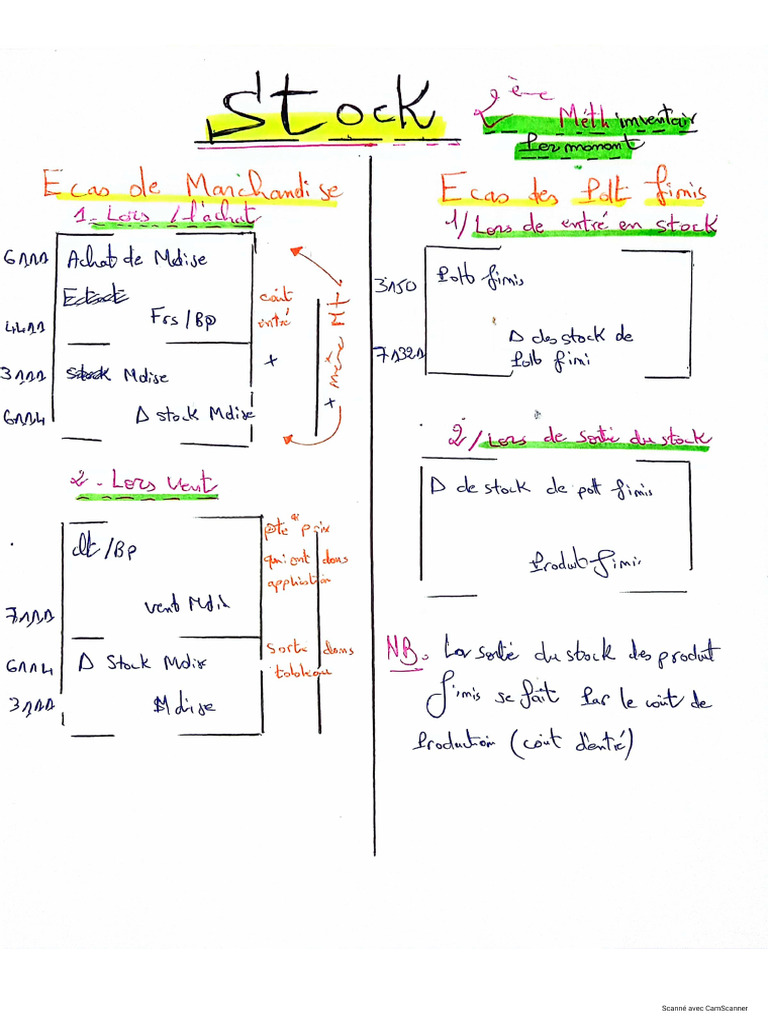 Stock
2ème Méth inventair
Permanant
Ecas de Marchandise
1-Lors / l'achat
6111 Achat de Mdise
4411 Frs/Bp
3111 Stock Mdise
6114 Δ stock Mdise
coût
entré
+
+ même Mt
2-Lors vent
clt/Bp
7111 vent Mdis
6114 Δ Stock Mdise
3111 Mdise
qté * prix
qui ont dans
application
sorte dans
tableau
Ecas des Pdt finis
1/ Lors de entré en stock
3150 Pdts finis
71321 Δ des stock de
Pdts fini
2/ Lors de sortie du stock
Δ de stock de pdt finis
Produit finis
NB. La sortie du stock des produit
finis se fait Par le coût de
Production (coût d'entré)
Scanné avec CamScanner